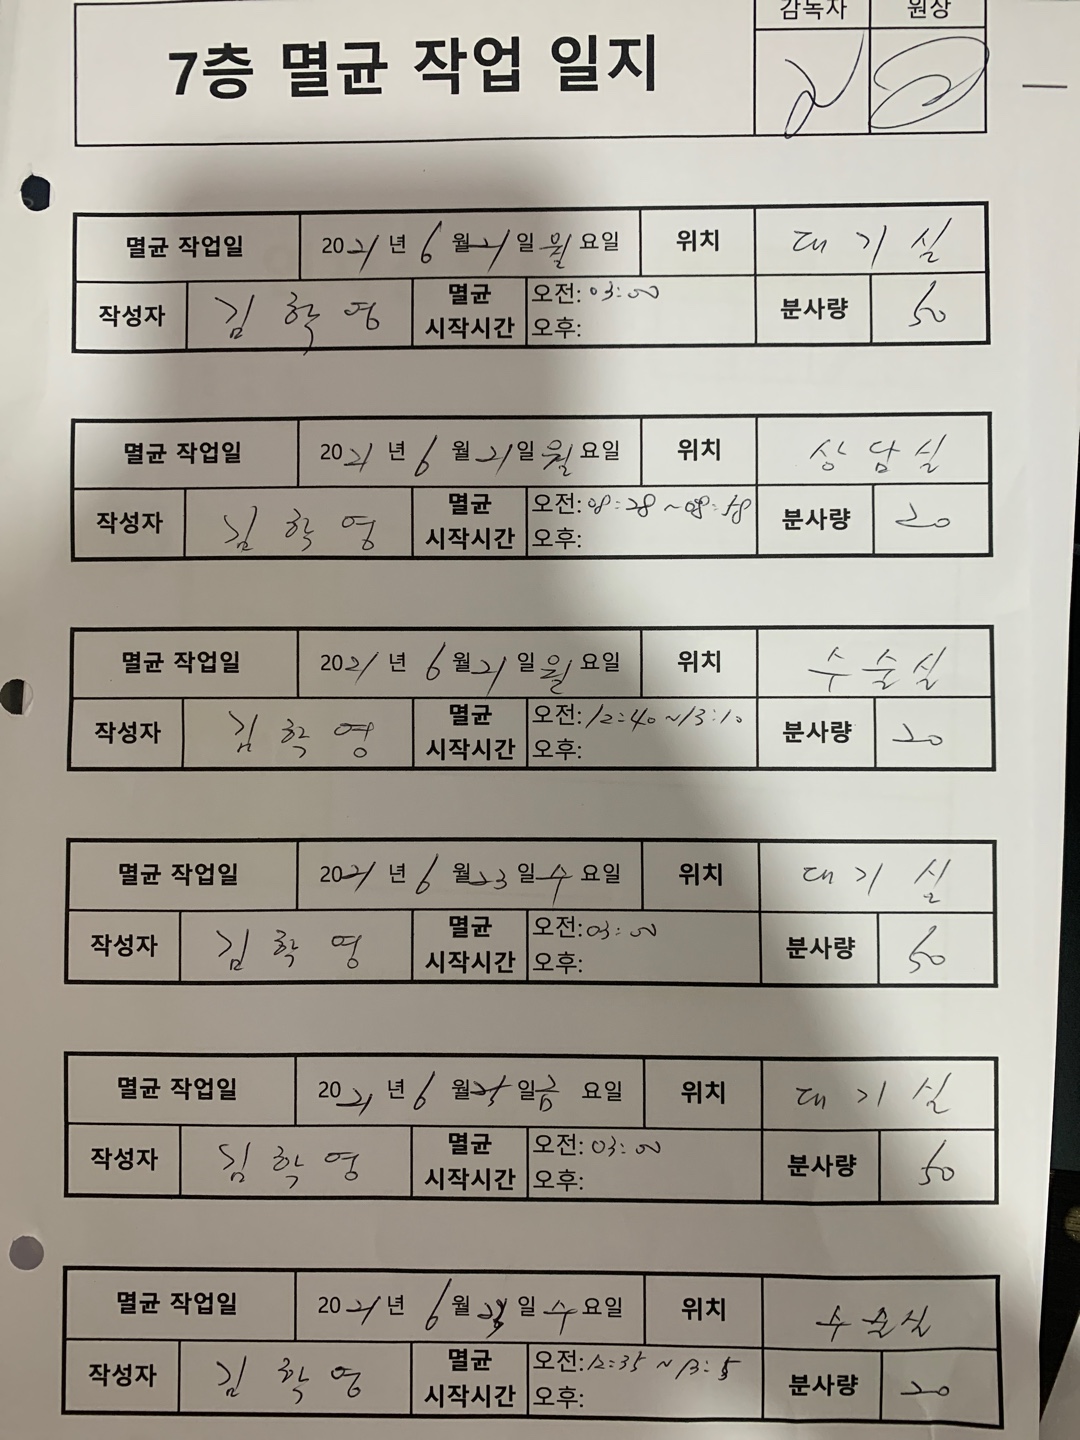 감독자 원장
7층 멸균 작업 일지
멸균 작업일 2021년 6월 21일 월요일 위치 대기실
작성자 김학영 멸균 시작시간 오전: 03:00 분사량 50
오후:
멸균 작업일 2021년 6월 21일 월요일 위치 상담실
작성자 김학영 멸균 시작시간 오전: 08:28 ~ 08:58 분사량 20
오후:
멸균 작업일 2021년 6월 21일 월요일 위치 수술실
작성자 김학영 멸균 시작시간 오전: 12:40 ~ 13:10 분사량 20
오후:
멸균 작업일 2021년 6월 23일 수요일 위치 대기실
작성자 김학영 멸균 시작시간 오전: 03:00 분사량 50
오후:
멸균 작업일 2021년 6월 25일 금요일 위치 대기실
작성자 김학영 멸균 시작시간 오전: 03:00 분사량 50
오후:
멸균 작업일 2021년 6월 23일 수요일 위치 수술실
작성자 김학영 멸균 시작시간 오전: 12:35 ~ 13:5 분사량 20
오후: